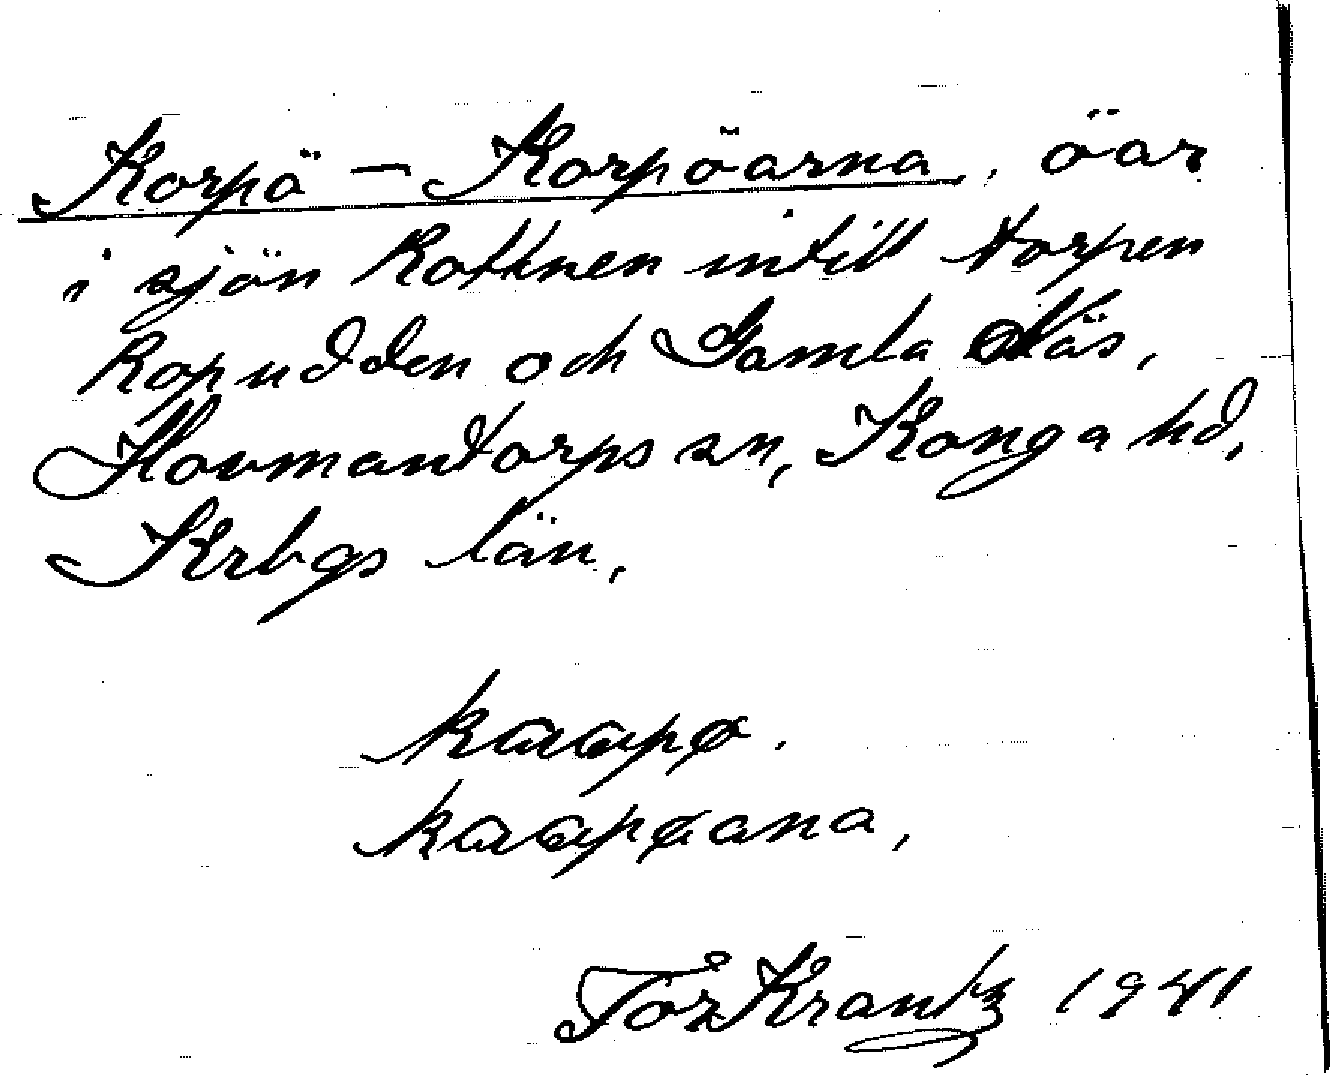 Korpö – Korpöarna, öar
i sjön Rottnen intill torpen
Ropudden och Gamla Näs,
Hovmantorps sn, Konga hd,
Krbgs län.
kaapø.
kaapøana,
Tor Krantz 1941